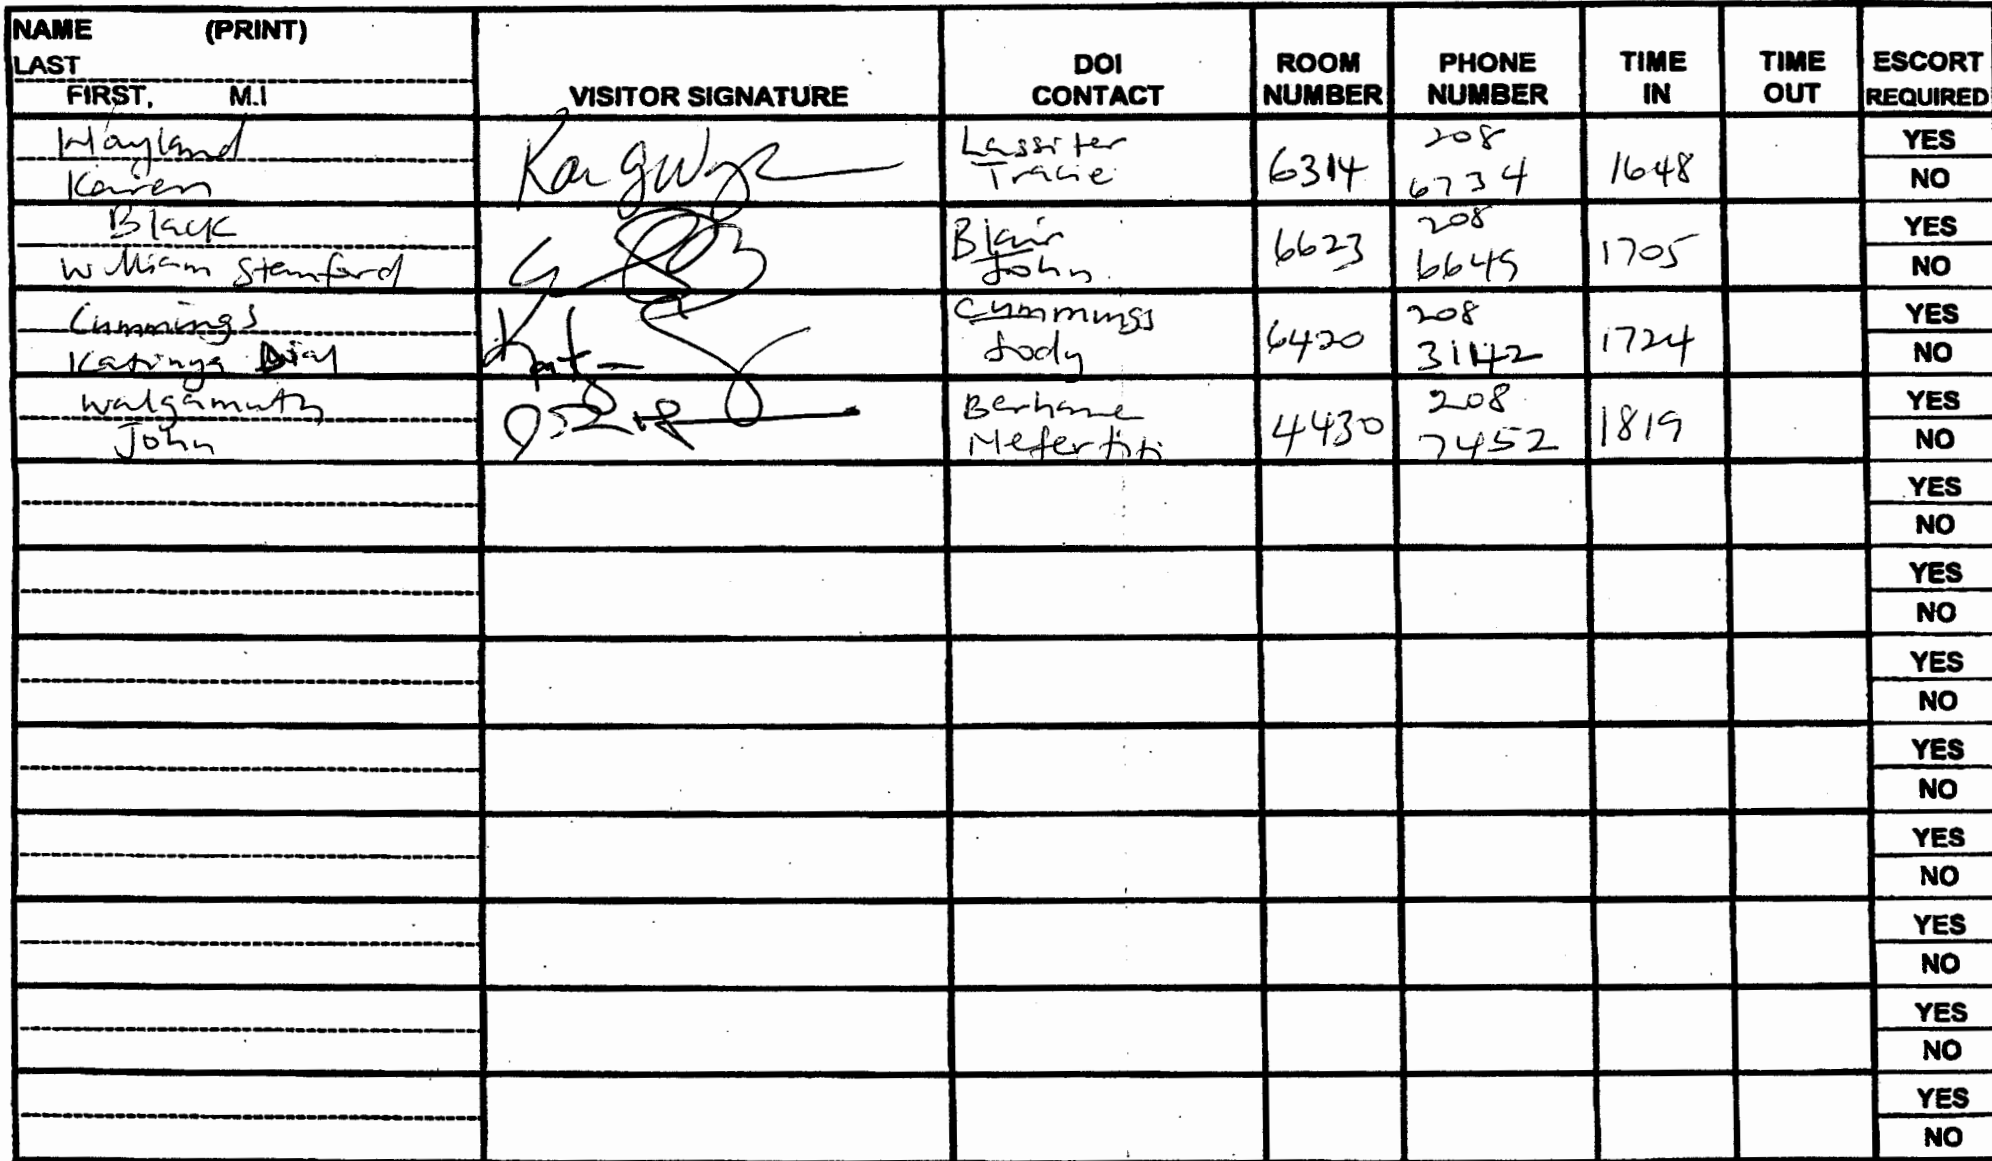 NAME (PRINT)
LAST
FIRST, M.I
VISITOR SIGNATURE
DOI CONTACT
ROOM NUMBER
PHONE NUMBER
TIME IN
TIME OUT
ESCORT REQUIRED
Karen
Lassiter Tracie
6314
208 6734
1648
YES
NO
Black
William Stamford
Blair John
6623
208 6649
1705
YES
NO
Cummings
Cummings Jody
6420
208 3142
1724
YES
NO
Walgamuth
John
Berhane Nefertiti
4430
208 7452
1819
YES
NO
YES
NO
YES
NO
YES
NO
YES
NO
YES
NO
YES
NO
YES
NO
YES
NO